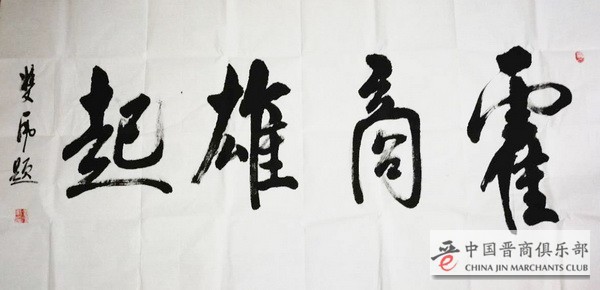 霍商雄起
题
中国晋商俱乐部
CHINA JIN MARCHANTS CLUB